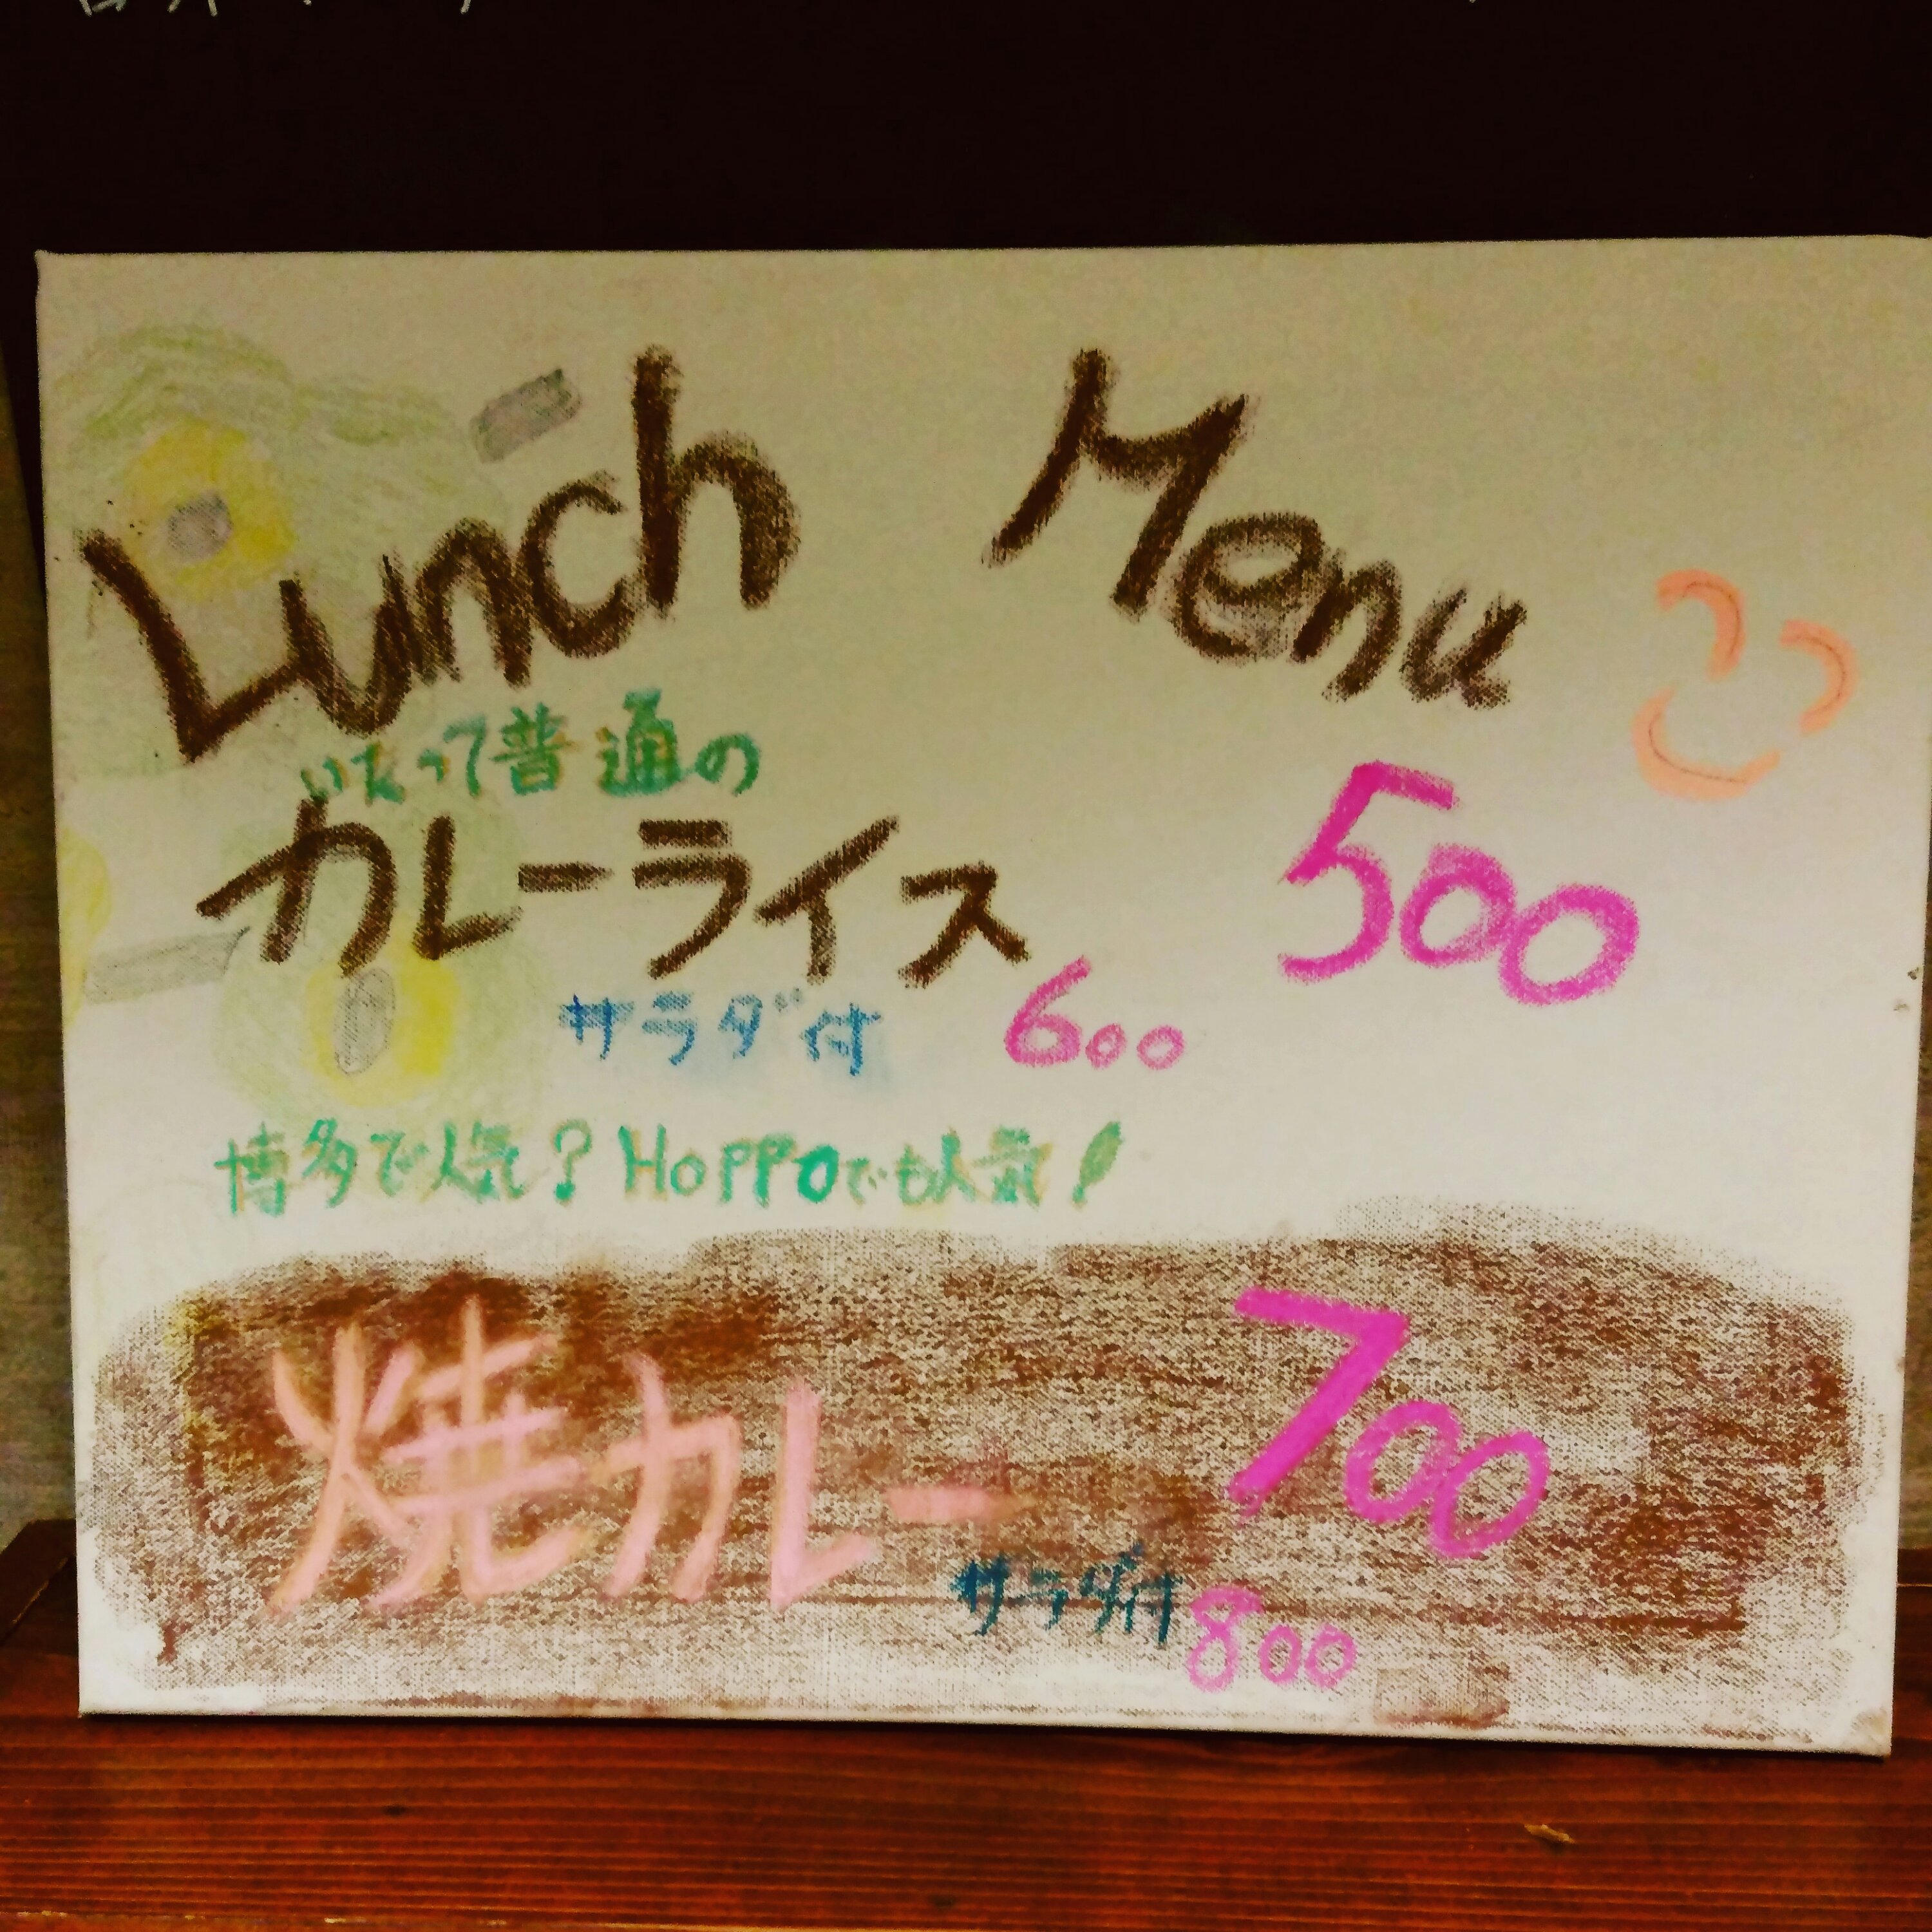 Lunch Menu
いたって普通の
カレーライス 500
サラダ付 600
博多で人気? HoPPoでも人気!
焼カレー 700
サラダ付 800